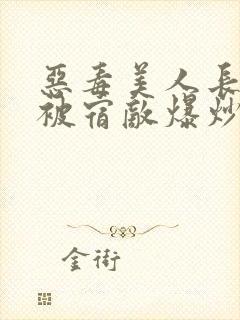 惡毒美人長
被宿敵爆炒
金街